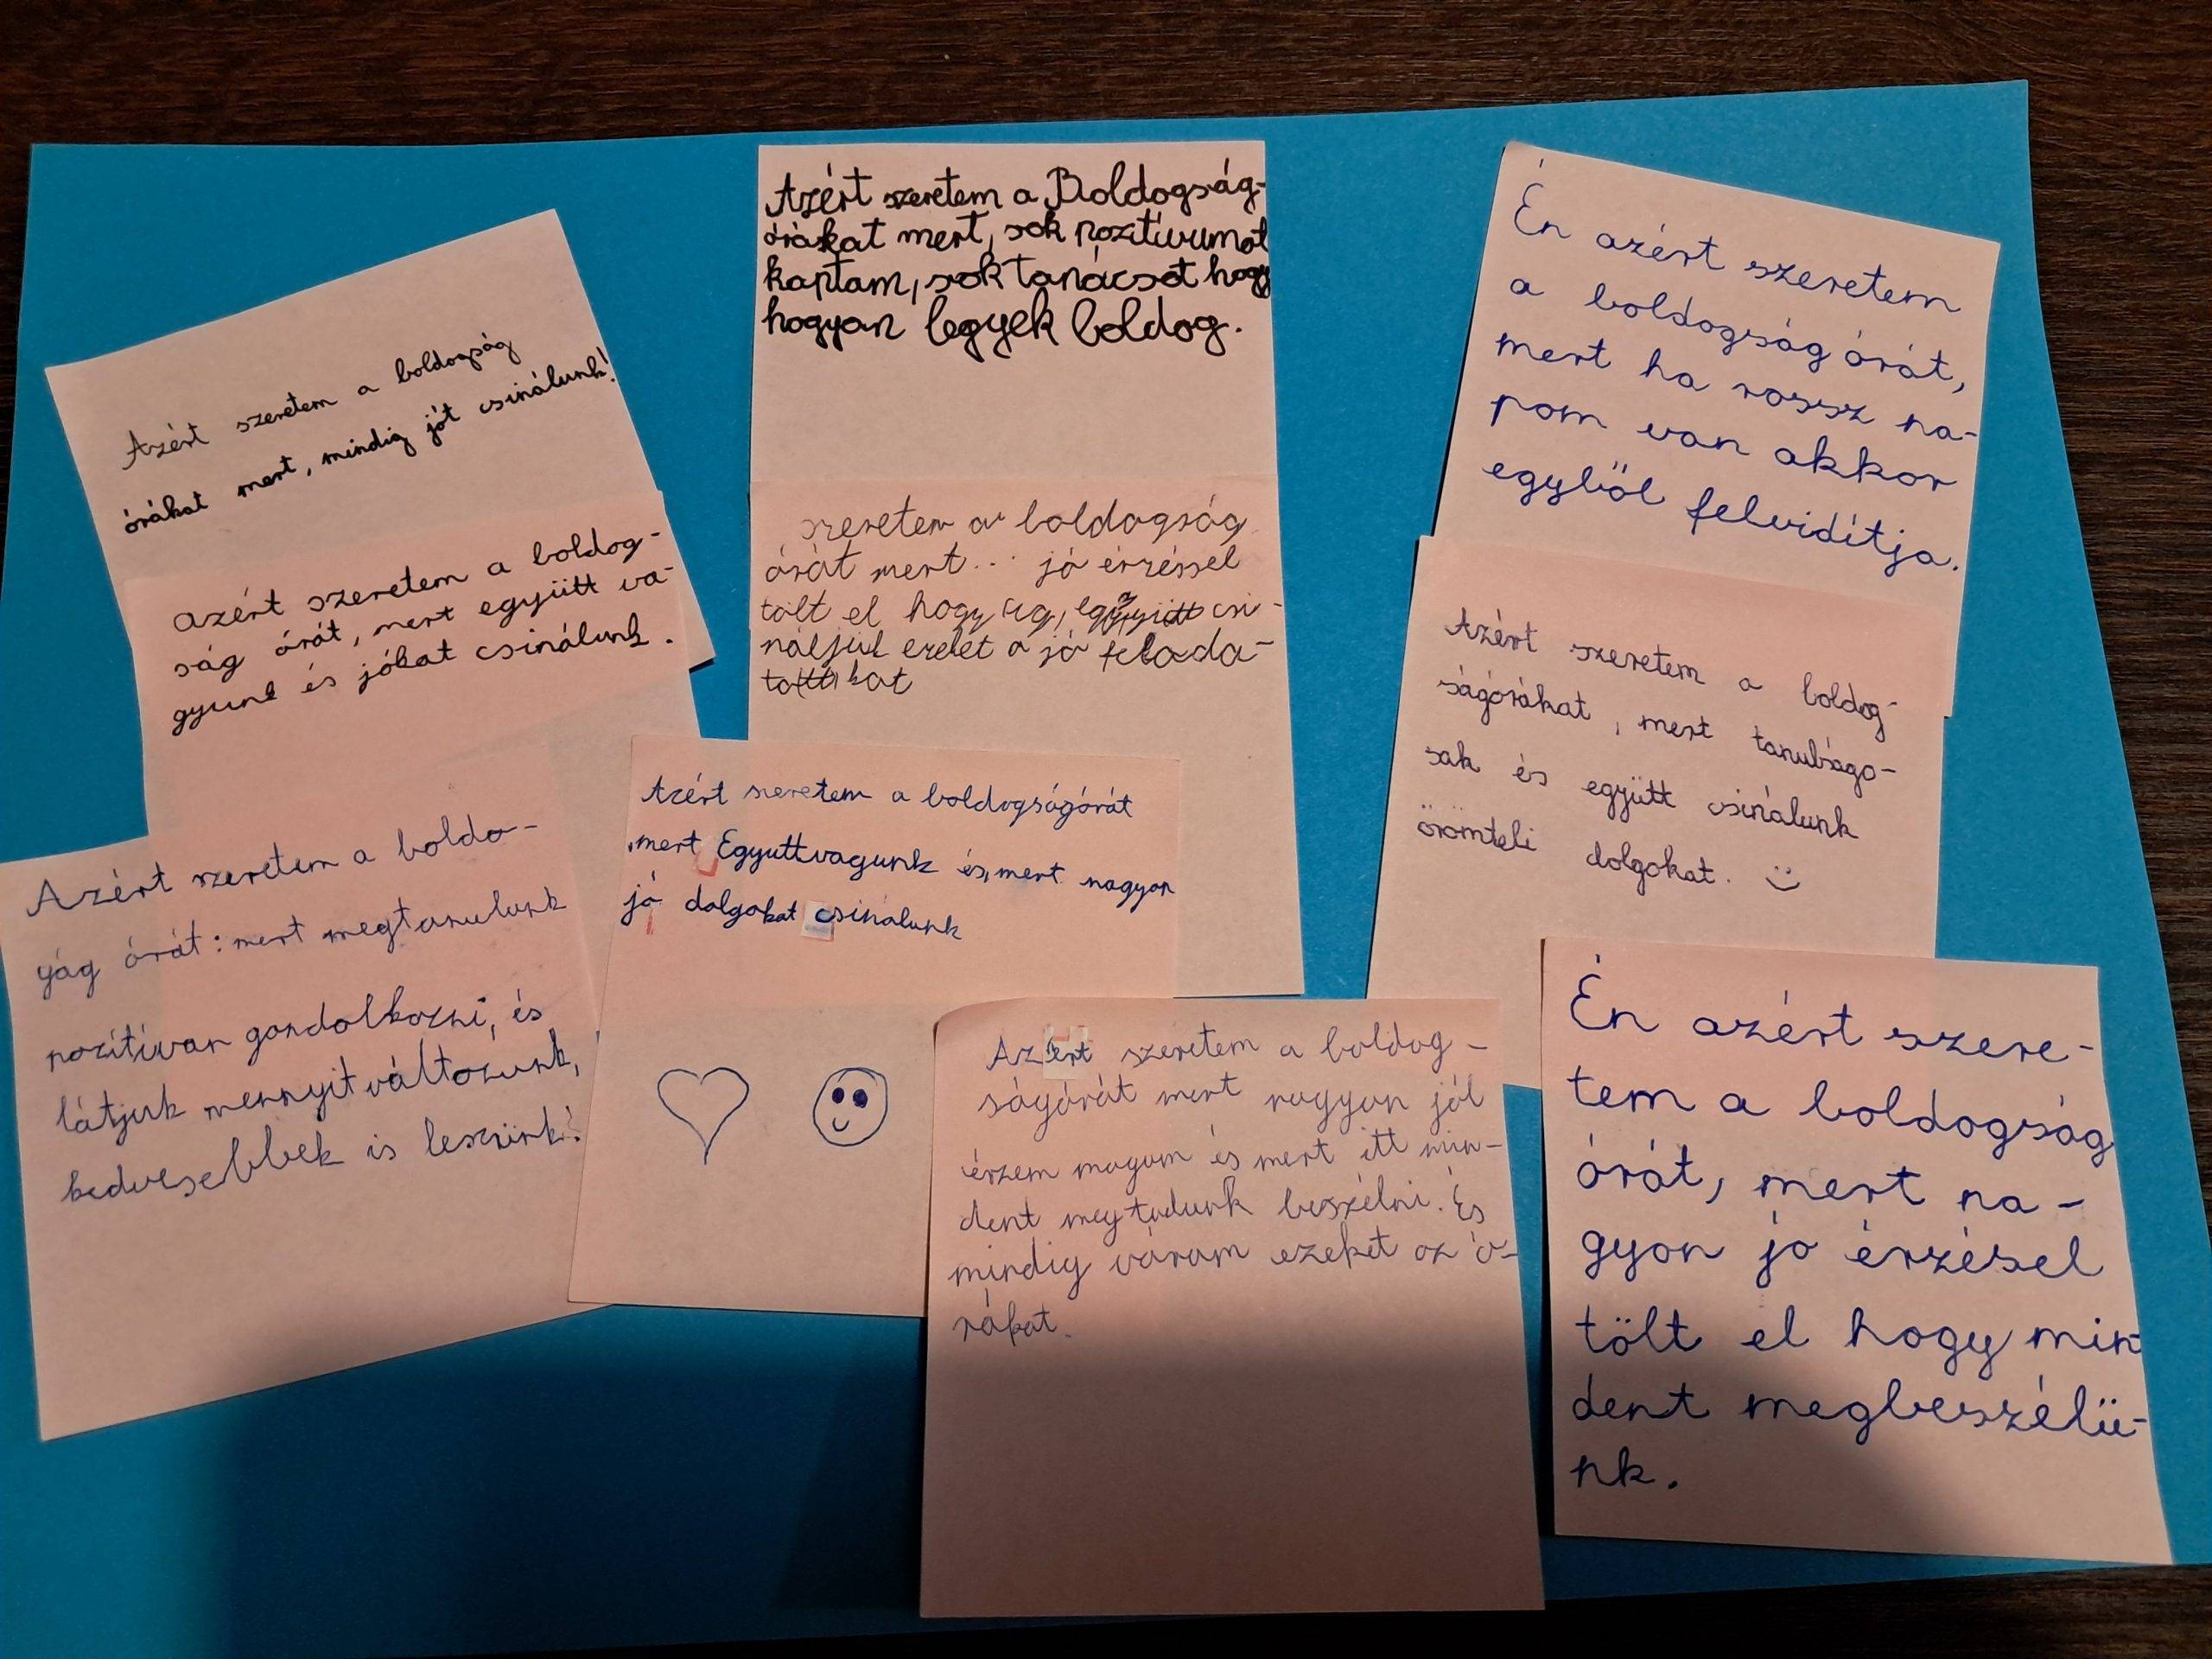 Azért szeretem a boldogság
órákat mert, mindig jót csinálunk!
azért szeretem a boldog-
ság órát, mert együtt va-
gyunk és jókat csinálunk.
Azért szeretem a boldo-
gág órát: mert megtanulunk
pozitívan gondolkozni, és
látjuk mennyit változunk,
kedvesebbek is leszünk!
Azért szeretem a Boldogság-
órákat mert, sok pozitívumot
kaptam, sok tanácsot hogy
hogyan legyek boldog.
szeretem a boldogság
órát mert... jó érzéssel
tölt el hogy így, együtt csi-
náljuk ezeket a jó felada-
tokat
Azért szeretem a boldogságórát
,mert Együttvagunk és,mert nagyon
jó dolgokat csinálunk
Azért szeretem a boldog-
ságórát mert nagyon jól
érzem magam és mert itt min-
dent megtudunk beszélni. És
mindig várom ezeket az ó-
rákat.
Én azért szeretem
a boldogság órát,
mert ha rossz na-
pom van akkor
egyből felvidítja.
Azért szeretem a boldog-
ságórákat, mert tanulságo-
sak és együtt csinálunk
örömteli dolgokat. :)
Én azért szere-
tem a boldogság
órát, mert na-
gyon jó érzésel
tölt el hogy min
dent megbeszélü-
nk.